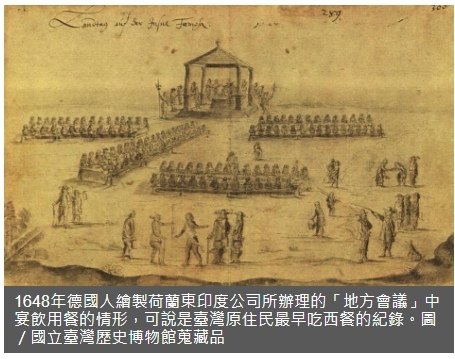 Landtag auf der Insul Formosa
289
1648年德國人繪製荷蘭東印度公司所辦理的「地方會議」中
宴飲用餐的情形，可說是臺灣原住民最早吃西餐的紀錄。圖
/ 國立臺灣歷史博物館蒐藏品